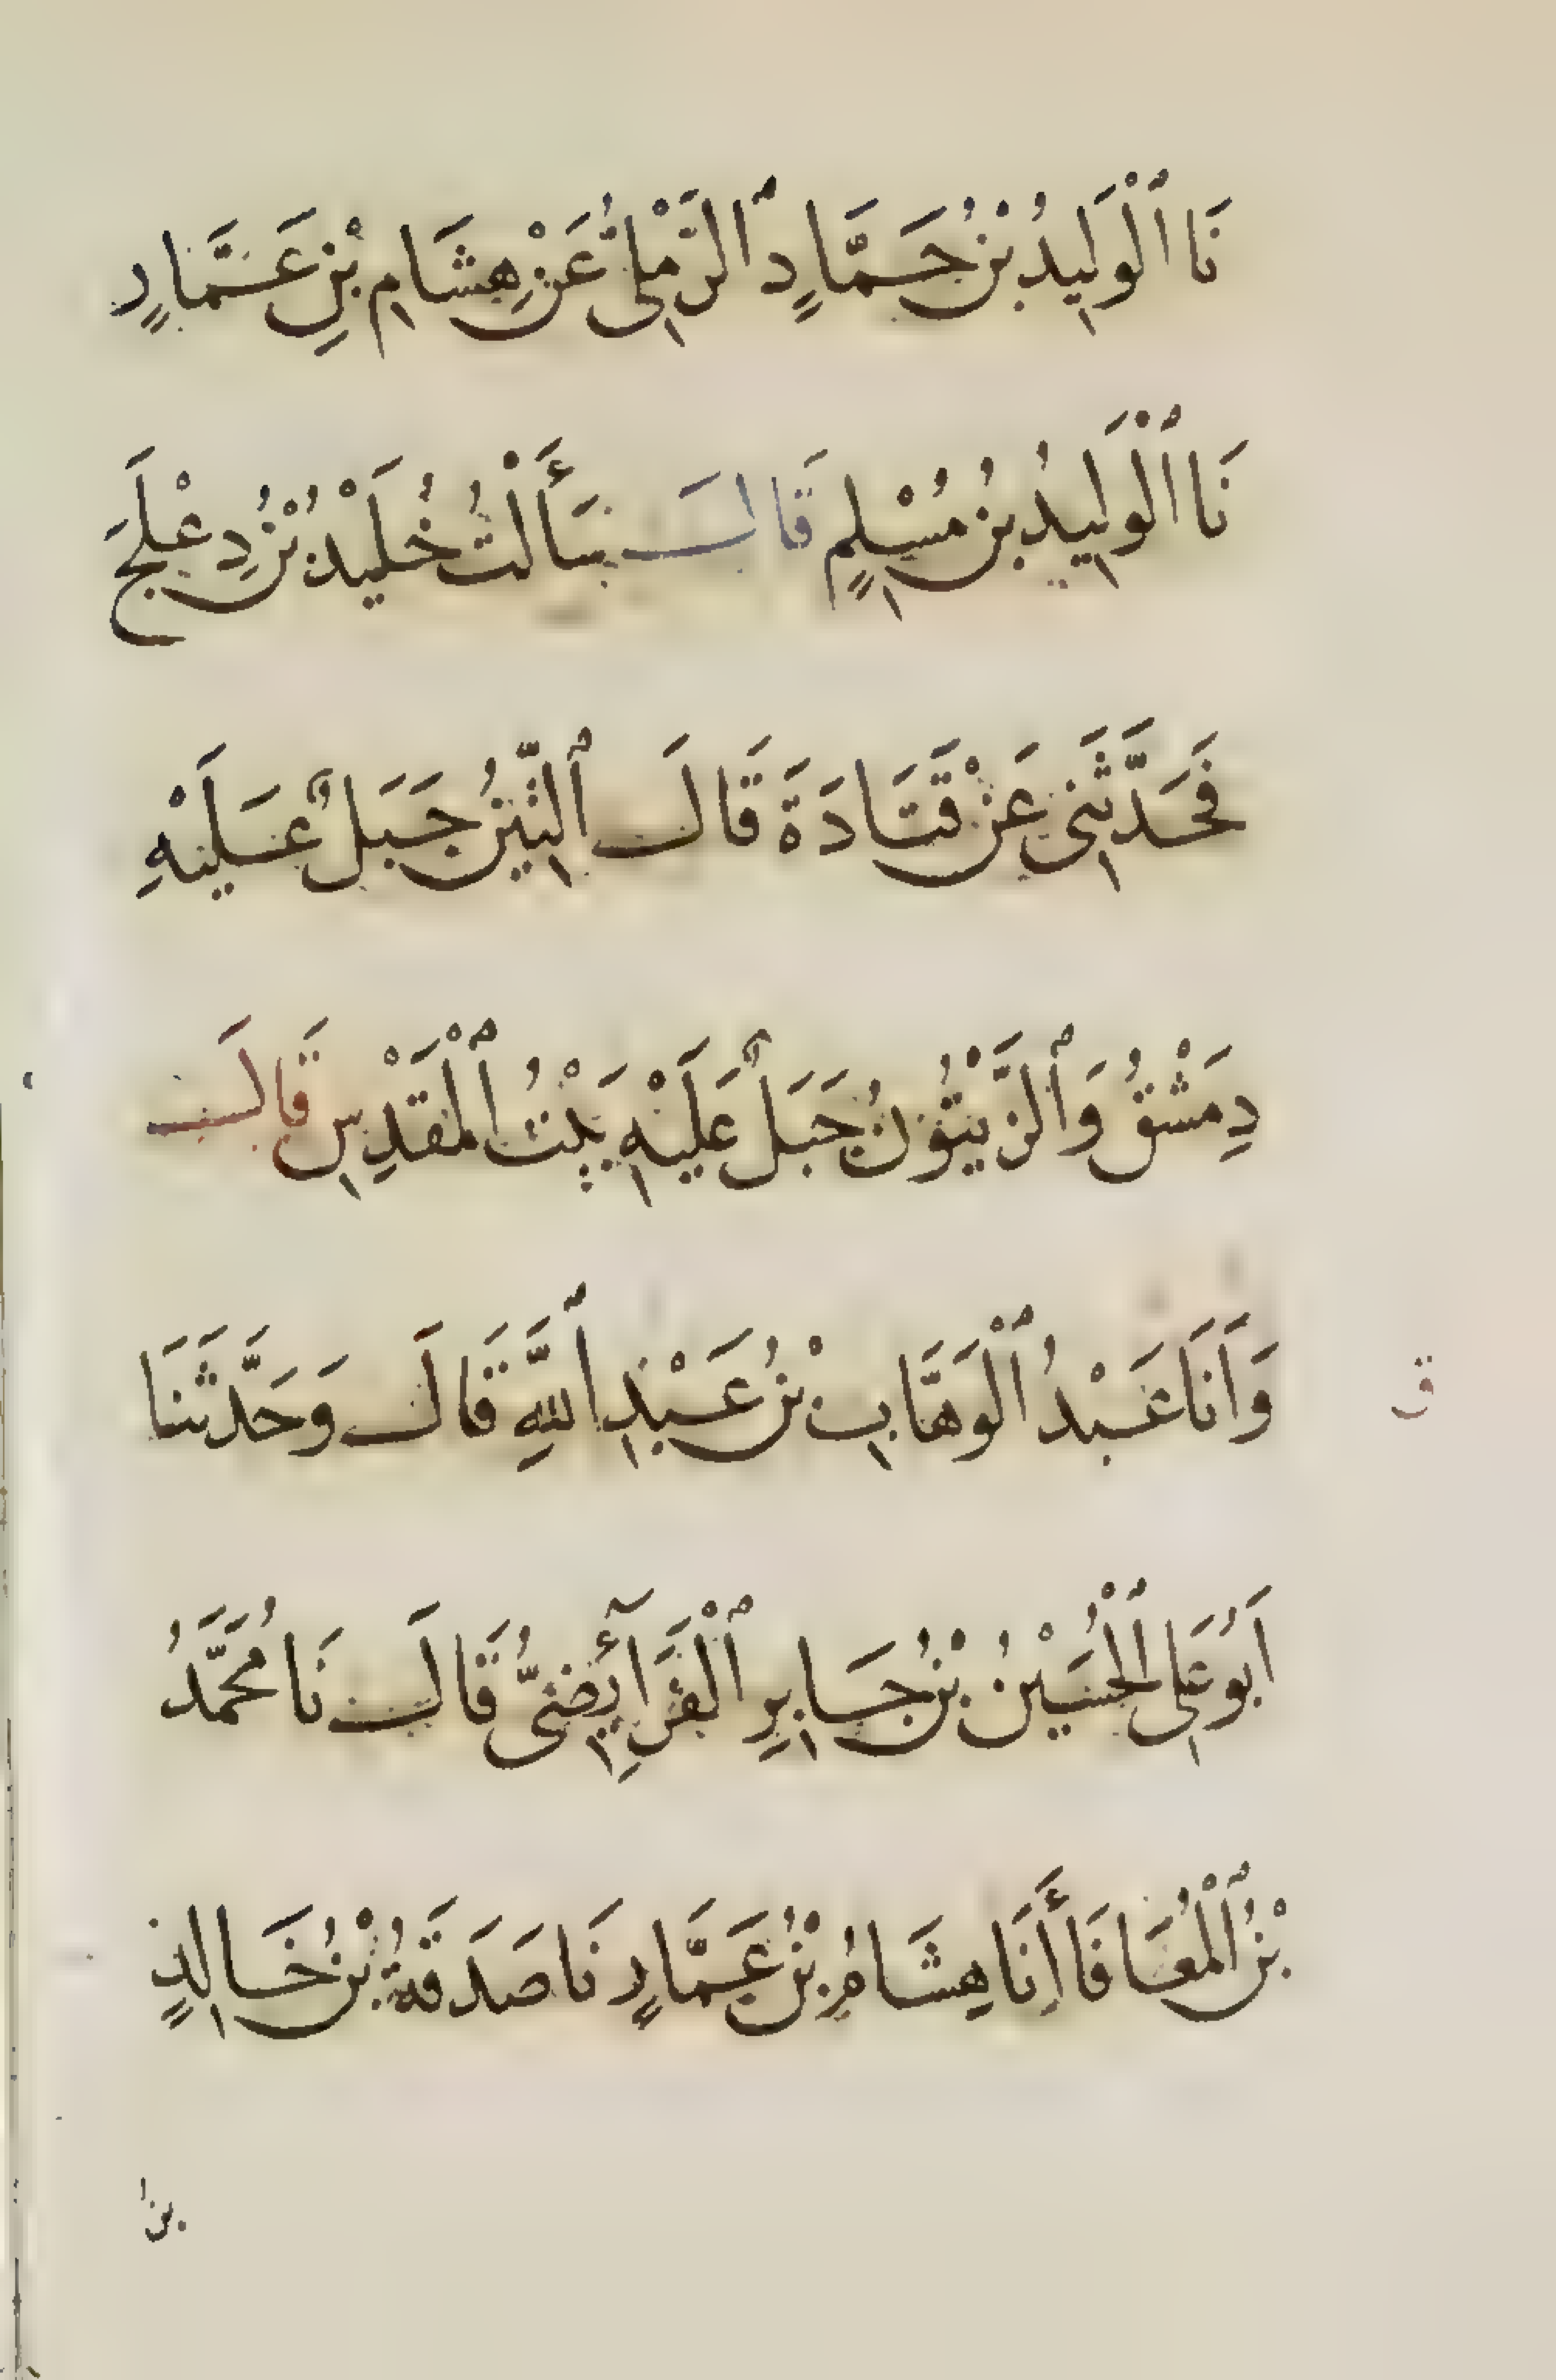 نَا ٱلْوَلِيدُ بْنُ حَمَّادٍ ٱلرَّمْلِىُّ عَنْ هِشَامِ بْنِ عَمَّارٍ
نَا ٱلْوَلِيدُ بْنُ مُسْلِمٍ قَالَ سَأَلْتُ خُلَيْدُ بْنُ دِعْلَجَ
فَحَدَّثَنِى عَنْ قَتَادَةَ قَالَ ٱلتِّينُ جَبَلٌ عَلَيْهِ
دِمَشْقُ وَٱلزَّيْتُونُ جَبَلٌ عَلَيْهِ بَيْتُ ٱلْمَقْدِسِ قَالَ
وَاَنَا عَبْدُ ٱلْوَهَّابِ بْنُ عَبْدِ ٱللَّهِ قَالَ وَحَدَّثَنَا
ق
اَبُو عَلِى ٱلْحُسَيْنُ بْنُ جَابِرِ ٱلْفَرَآئِضِىُّ قَالَ نَا مُحَمَّدُ
بْنُ ٱلْمُعَافَا أَنَا هِشَامُ بْنُ عَمَّارٍ نَا صَدَقَةُ بْنُ خَالِدٍ
بن